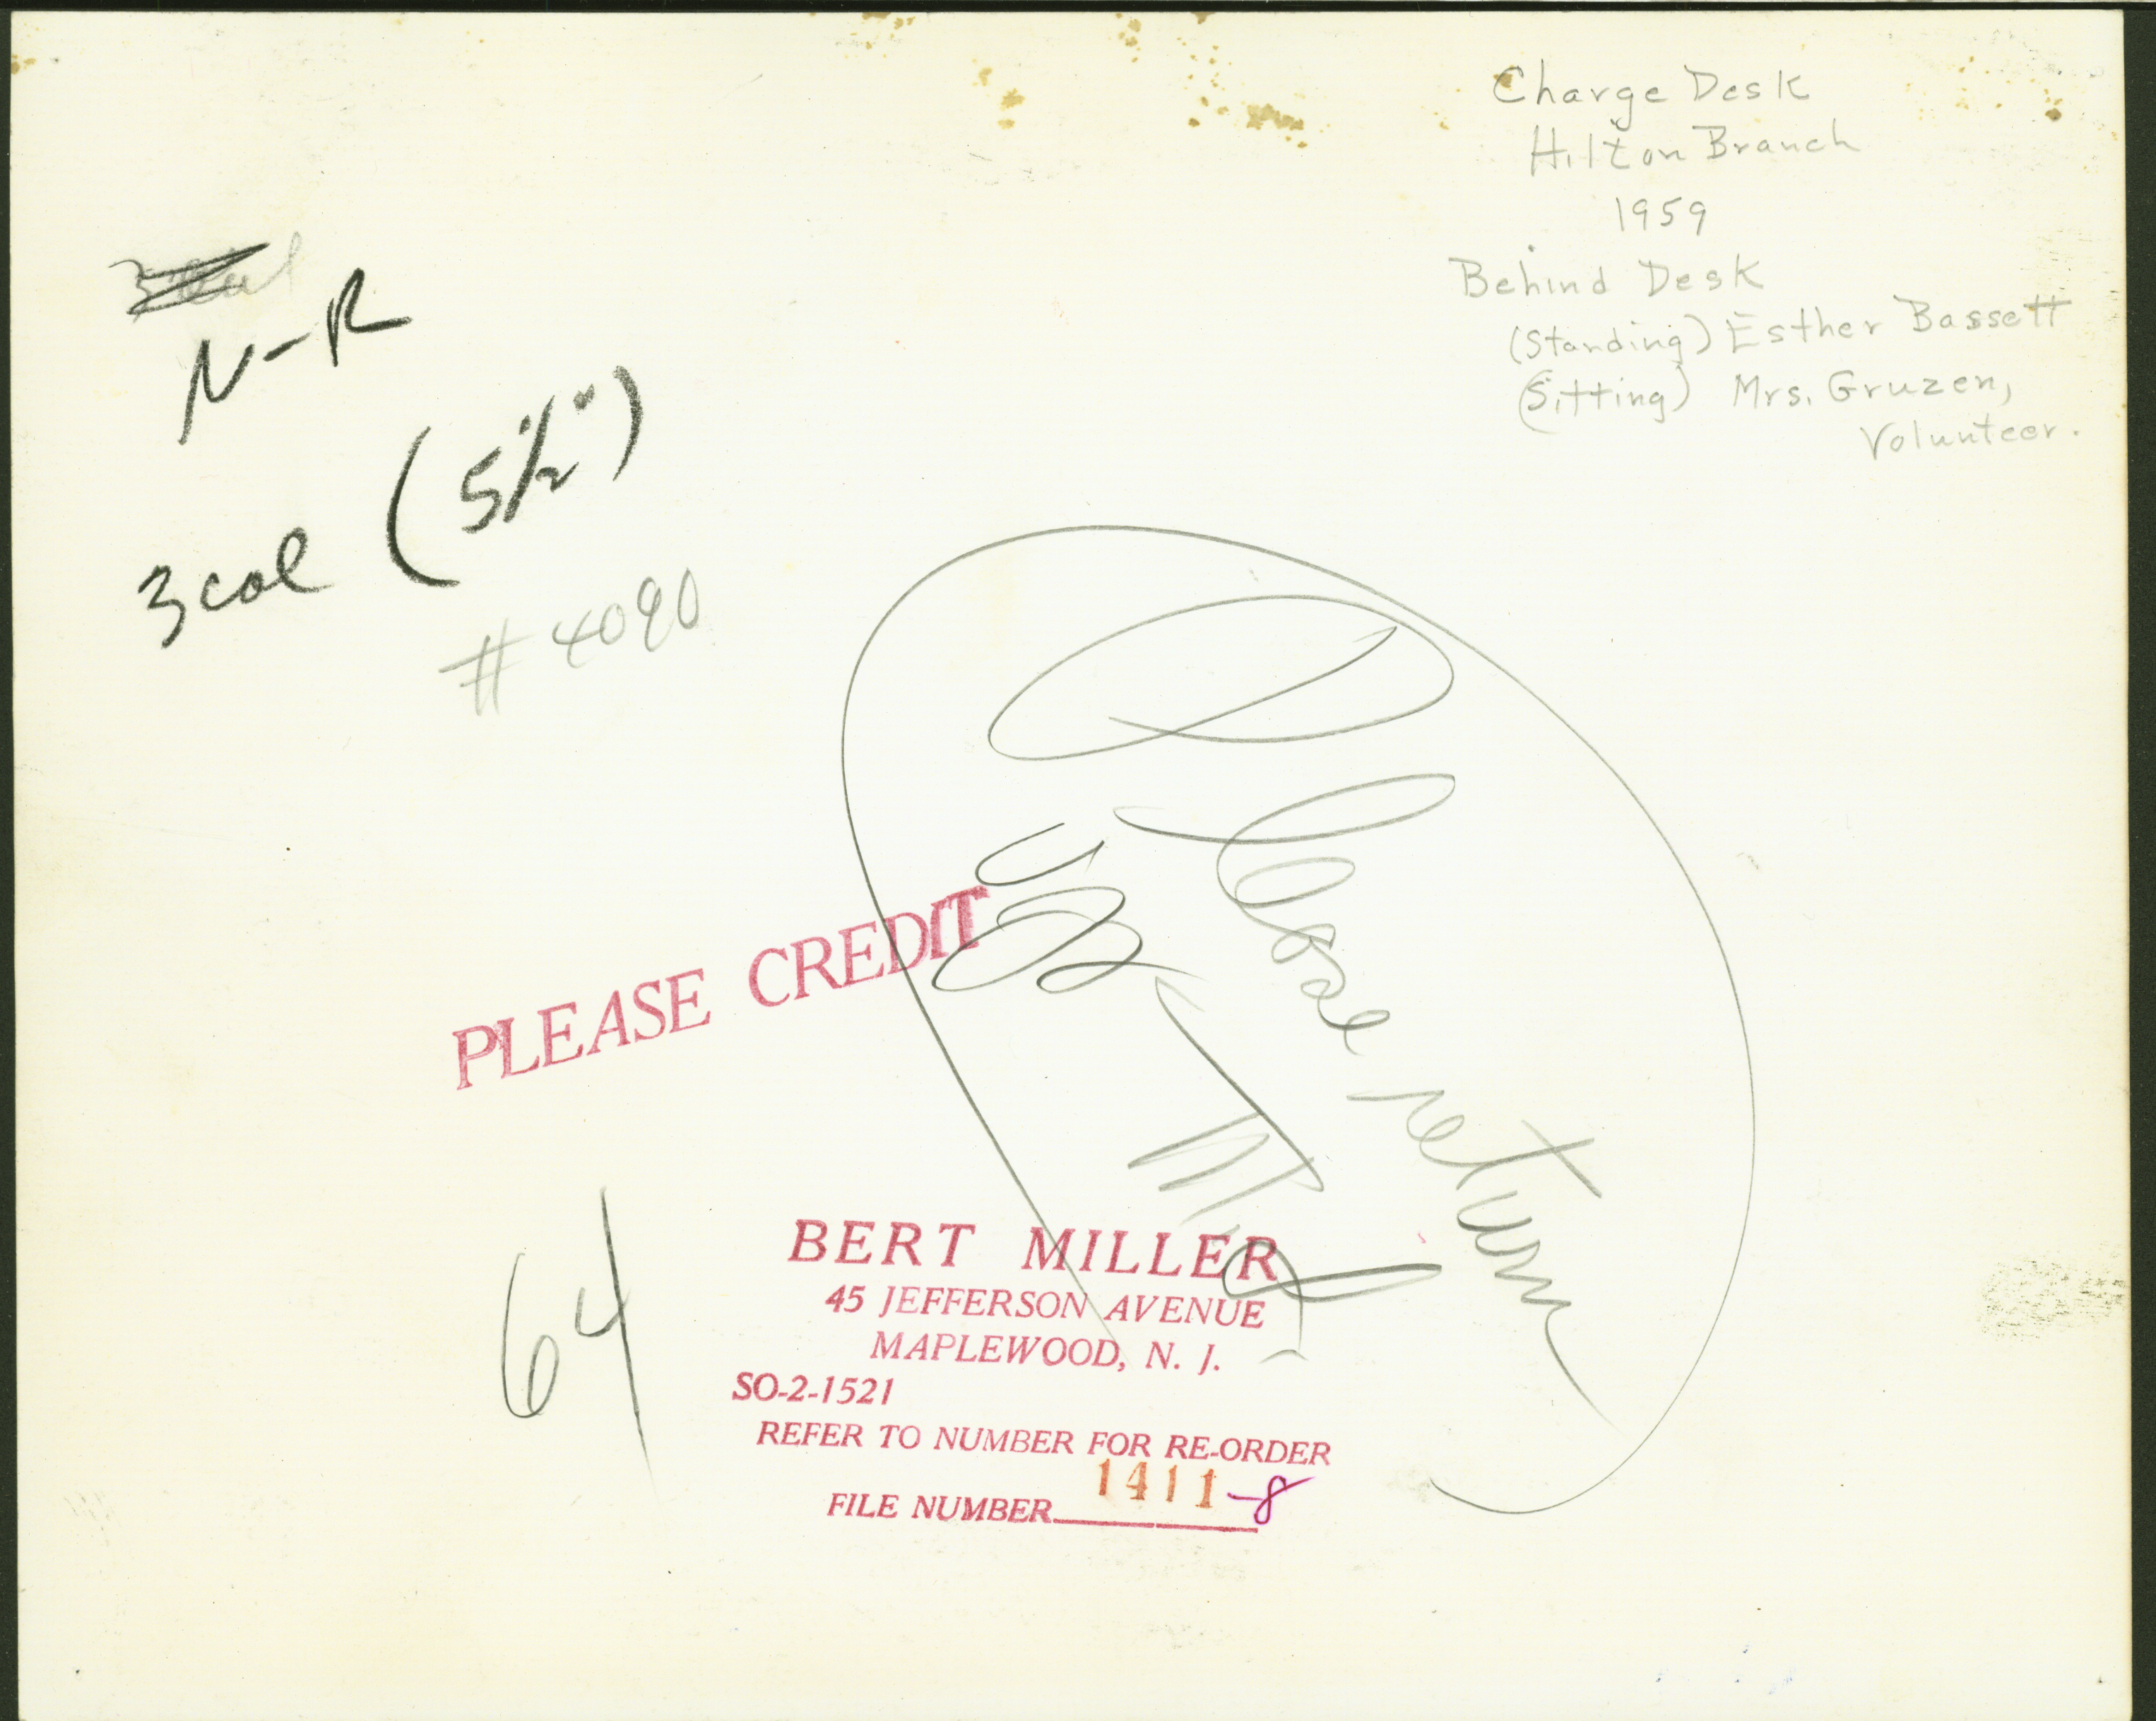 Charge Desk
Hilton Branch
1959
Behind Desk
(Standing) Esther Bassett
(Sitting) Mrs. Gruzen,
Volunteer.
N-R
3 col (5 1/2")
#4090
Please return
to
PLEASE CREDIT
64
BERT MILLER
45 JEFFERSON AVENUE
MAPLEWOOD, N. J.
SO-2-1521
REFER TO NUMBER FOR RE-ORDER
FILE NUMBER 1411-8